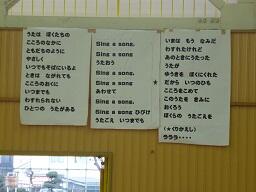 うたは ぼくたちの
こころのなかに
ともだちのように
やさしく
いつでもそばにいるよ
ときは ながれても
こころのおくに
いつまでも
わすれられない
ひとつの うたがある
Sing a song.
Sing a song.
うたおう
Sing a song.
Sing a song.
あわせて
Sing a song.
Sing a song ひびけ
うたごえ いつまでも
いまは もう なみだ
わすれたけれど
あのときにうたった
うたが
ゆうきを ぼくにくれた
だから いつのひも
★こころをこめて
このうたを きみに
おくろう
ぼくらの うたごえを
(★くりかえし)
ラララ・・・・